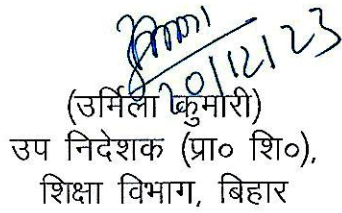 20/12/23
(उर्मिला कुमारी)
उप निदेशक (प्रा० शि०),
शिक्षा विभाग, बिहार